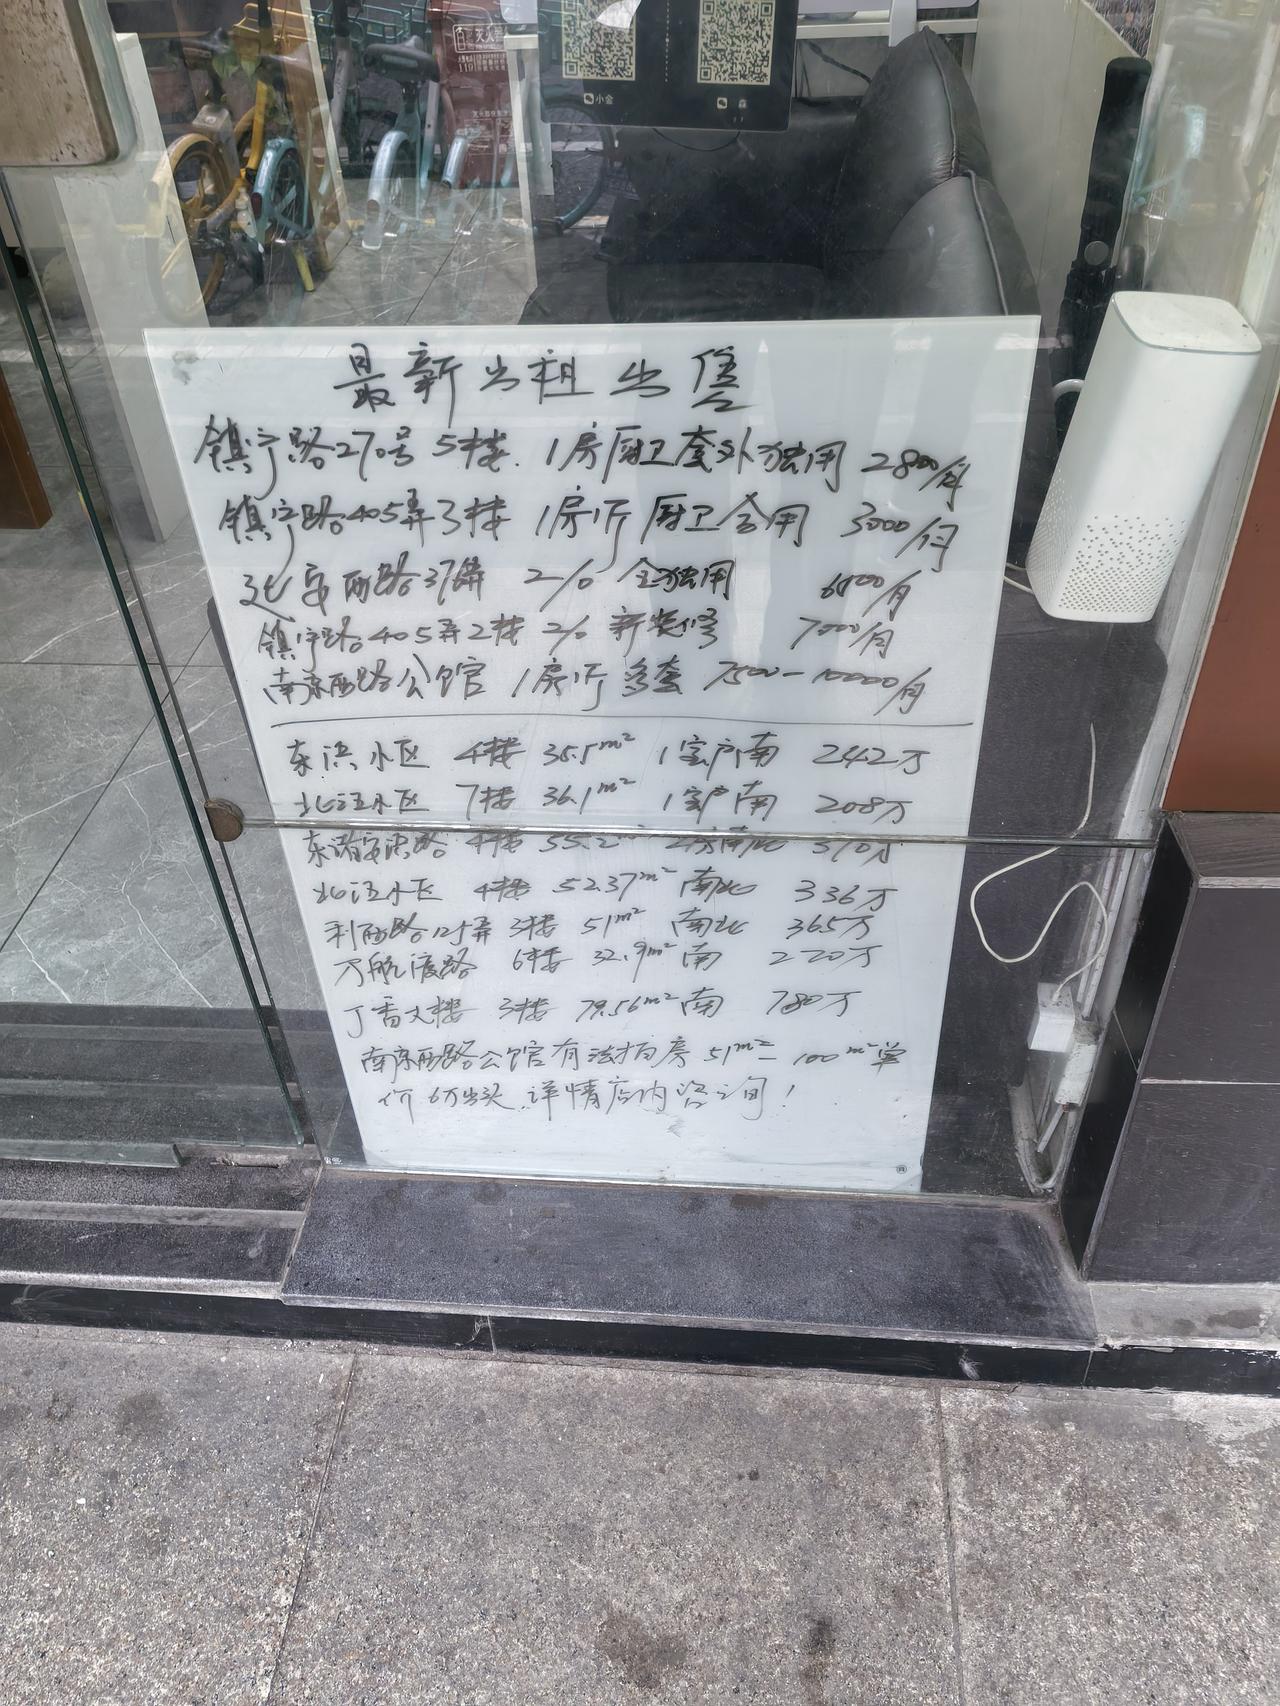 小金
119
最新出租出售
镇宁路270号 5楼. 1房厨卫套外独用 2800/月
镇宁路405弄3楼 1房1厅 厨卫合用 3000/月
延安西路37弄 2/0 全独用 6800/月
镇宁路405弄2楼 2/0 新装修 7000/月
南京西路公馆 1房1厅 多套 7500-10000/月
东浜小区 4楼 35.5m² 1室户南 242万
北汪小区 7楼 36.1m² 1室户南 208万
东诸安浜路 4楼 55.2m² 2房南北
北汪小区 4楼 52.37m² 南北 336万
利西路125弄 3楼 51m² 南北 365万
万航渡路 6楼 32.9m² 南 220万
丁香大楼 3楼 79.56m² 南 780万
南京西路公馆有法拍房 51m²-100m²单
价6万出头.详情店内咨询!